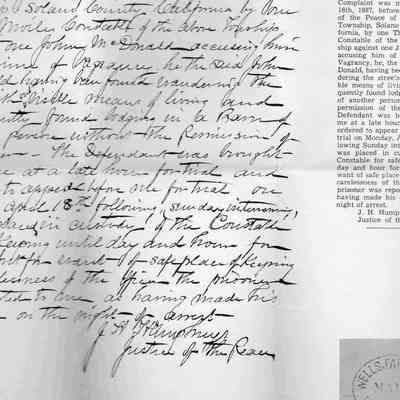 Solano County, California by Thos
Constable of the above Township
one John McDonald accusing him
crime of Vagrancy, he the said John
having been found wandering the
visible means of living and
found lodging in a Barn of
person without the Permission of
The Defendant was brought
me at a late hour for trial and
to appear before me for trial on
April 18th following, Sunday intervening,
placed in custody of the Constable
keeping until day and hour for
for want of safe place of keeping
carelessness of the officer the prisoner
reported to me as having made his
on the night of arrest
J. H. Humphrey
Justice of the Peace
Complaint was m
16th, 1887, before
of the Peace of
Township, Solano
fornia, by one Th
Constable of the
ship against one J
accusing him of
Vagrancy, he, the
Donald, having bee
dering the streets
ble means of livin
quently found lodg
of another person
permission of the
Defendant was b
me at a late hour
ordered to appear
trial on Monday, A
lowing Sunday int
was placed in cu
Constable for safe
day and hour for
want of safe place
carelessness of th
prisoner was repor
having made his
night of arrest.
J. H. Hump
Justice of th
WELLS, FAR